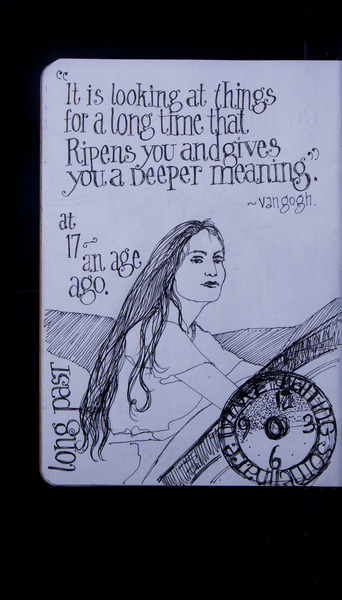 “It is looking at things
for a long time that
Ripens you and gives
you a Deeper meaning.”
~vangogh.
at
17~
an age
ago.
long past
12
3
6
9